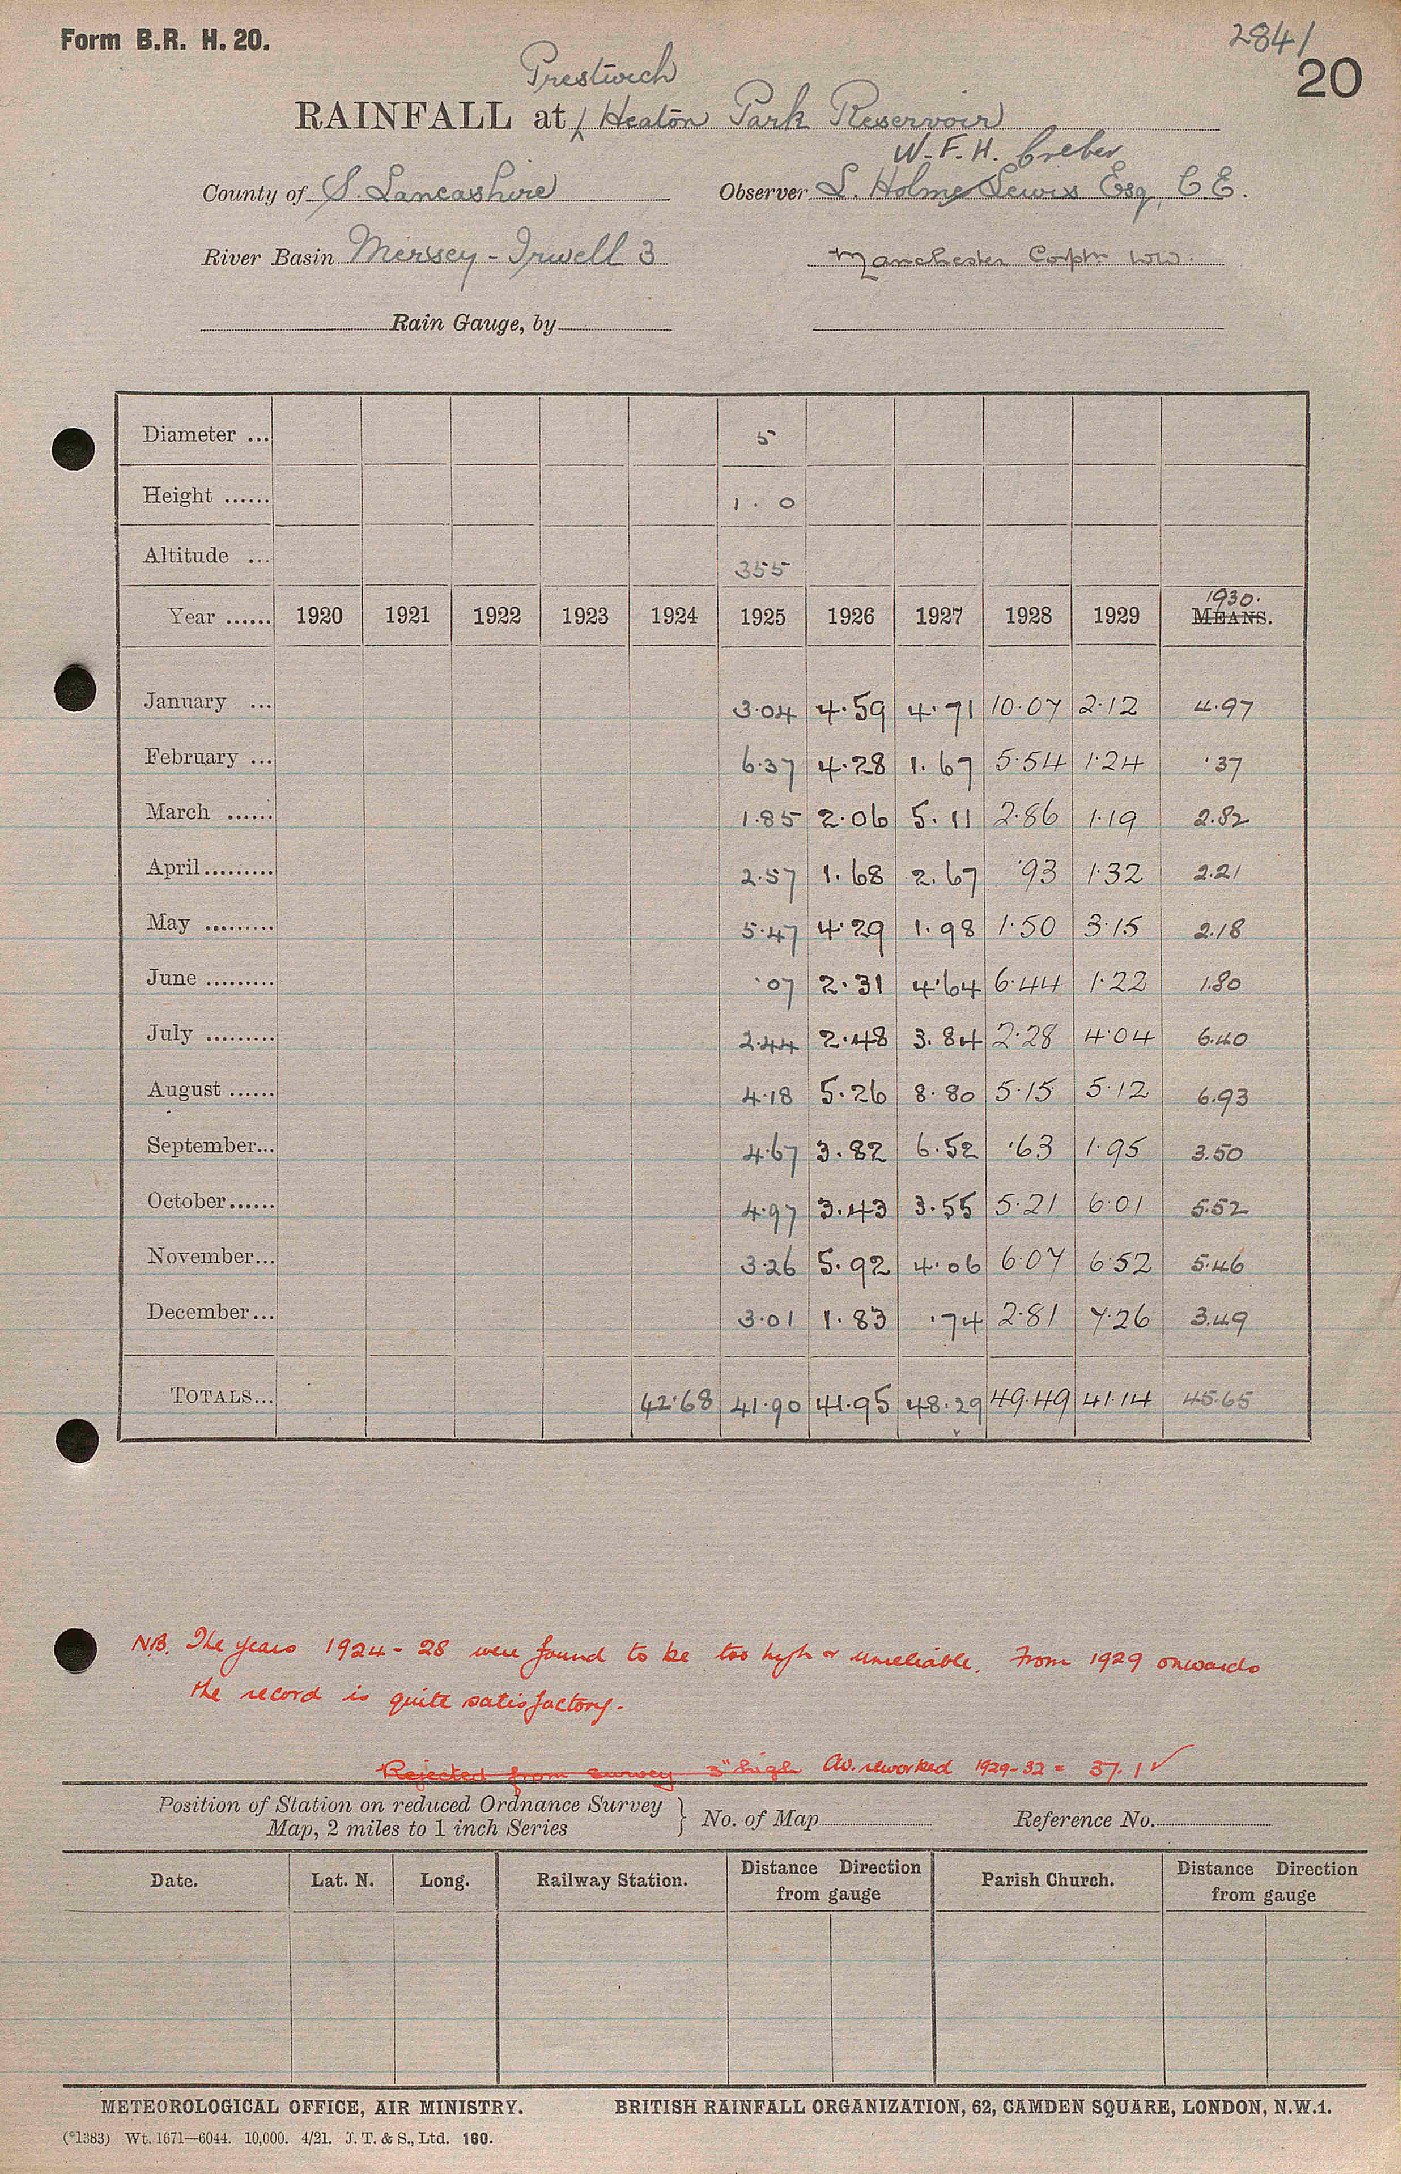 Form B.R. H. 20.
2841/
20
Prestwich
RAINFALL at Heaton Park Reservoir
W.F.H. Creber
County of S. Lancashire Observer L. Holme Lewis Esq, C E.
River Basin Mersey - Irwell 3 Manchester Corptn WW.
Rain Gauge, by
Diameter ... 5
Height ...... 1 . 0
Altitude ... 355
Year ...... 1920 1921 1922 1923 1924 1925 1926 1927 1928 1929 1930. MEANS.
January ... 3.04 4.59 4.71 10.07 2.12 4.97
February ... 6.37 4.28 1.67 5.54 1.24 .37
March ...... 1.85 2.06 5.11 2.86 1.19 2.82
April ......... 2.57 1.68 2.67 .93 1.32 2.21
May ......... 5.47 4.29 1.98 1.50 3.15 2.18
June ......... .07 2.31 4.64 6.44 1.22 1.80
July ......... 2.44 2.48 3.84 2.28 4.04 6.40
August ...... 4.18 5.26 8.80 5.15 5.12 6.93
September... 4.67 3.82 6.52 .63 1.95 3.50
October...... 4.97 3.43 3.55 5.21 6.01 5.52
November... 3.26 5.92 4.06 6.07 6.52 5.46
December... 3.01 1.83 .74 2.81 7.26 3.49
TOTALS... 42.68 41.90 41.95 48.29 49.49 41.14 45.65
N.B. The years 1924 - 28 were found to be too high or unreliable. From 1929 onwards
the record is quite satisfactory.
Rejected from survey 3" high Av. reworked 1929-32 = 37.1 ✓
Position of Station on reduced Ordnance Survey
Map, 2 miles to 1 inch Series } No. of Map Reference No.
Date. Lat. N. Long. Railway Station. Distance Direction from gauge Parish Church. Distance Direction from gauge
METEOROLOGICAL OFFICE, AIR MINISTRY. BRITISH RAINFALL ORGANIZATION, 62, CAMDEN SQUARE, LONDON, N.W.1.
(*1383) Wt. 1671—6044. 10,000. 4/21. J. T. & S., Ltd. 160.